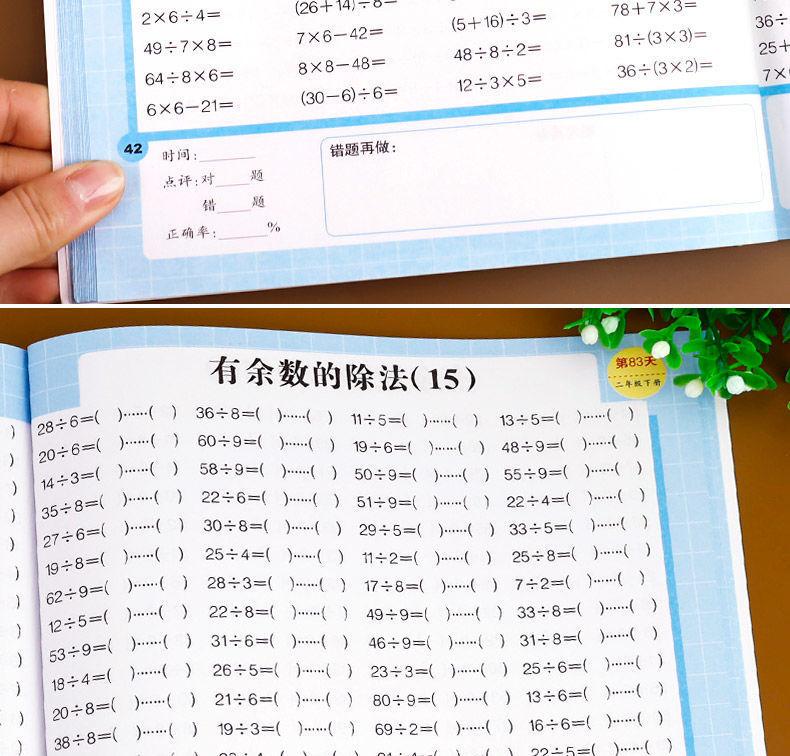 2×6÷4= (26+14)÷8= (5+16)÷3= 78+7×3=
49÷7×8= 7×6−42= 48÷8÷2= 81÷(3×3)= 36÷
64÷8×6= 8×8−48= 12÷3×5= 36÷(3×2)= 25+
6×6−21= (30−6)÷6= 7×
42
时间:______
点评:对____题
错____题
正确率:_____%
错题再做:
有余数的除法(15)
第83天
二年级下册
28÷6=( )……( ) 36÷8=( )……( ) 11÷5=( )……( ) 13÷5=( )……( )
20÷6=( )……( ) 60÷9=( )……( ) 19÷6=( )……( ) 48÷9=( )……( )
14÷3=( )……( ) 58÷9=( )……( ) 50÷9=( )……( ) 55÷9=( )……( )
35÷8=( )……( ) 22÷6=( )……( ) 51÷9=( )……( ) 22÷4=( )……( )
27÷6=( )……( ) 30÷8=( )……( ) 29÷5=( )……( ) 33÷5=( )……( )
19÷8=( )……( ) 25÷4=( )……( ) 11÷2=( )……( ) 25÷8=( )……( )
62÷9=( )……( ) 28÷3=( )……( ) 17÷8=( )……( ) 7÷2=( )……( )
12÷5=( )……( ) 22÷8=( )……( ) 49÷9=( )……( ) 33÷8=( )……( )
53÷9=( )……( ) 31÷6=( )……( ) 46÷9=( )……( ) 31÷8=( )……( )
18÷4=( )……( ) 26÷5=( )……( ) 23÷3=( )……( ) 25÷6=( )……( )
20÷8=( )……( ) 21÷6=( )……( ) 80÷9=( )……( ) 13÷6=( )……( )
38÷8=( )……( ) 19÷3=( )……( ) 69÷2=( )……( ) 16÷6=( )……( )
22÷5=( )……( )